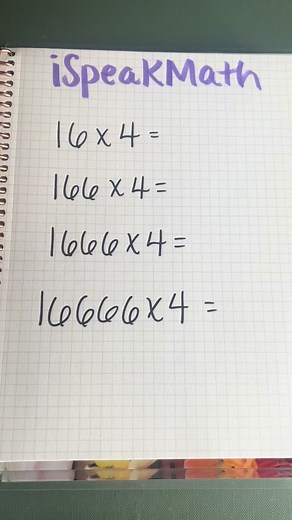 iSpeakMath
16 x 4 =
166 x 4 =
1666 x 4 =
16666 x 4 =